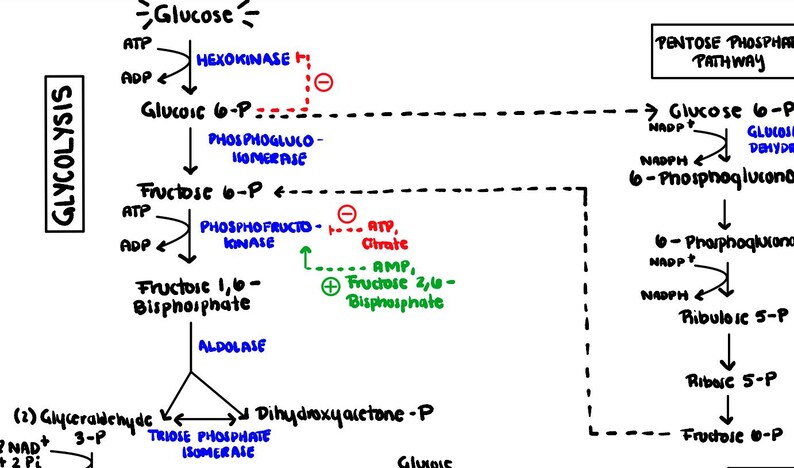 Glucose
ATP
HEXOKINASE
ADP
GLYCOLYSIS
Glucose 6-P
PHOSPHOGLUCO-
ISOMERASE
Fructose 6-P
ATP
PHOSPHOFRUCTO-
KINASE
ADP
ATP,
Citrate
AMP,
Fructose 2,6-
Bisphosphate
Fructose 1,6-
Bisphosphate
ALDOLASE
(2) Glyceraldehyde
3-P
Dihydroxyacetone-P
TRIOSE PHOSPHATE
ISOMERASE
NAD+
+ 2 Pi
Glucose
PENTOSE PHOSPHAT
PATHWAY
Glucose 6-P
NADP+
GLUCOS
DEHYDR
NADPH
6-Phosphoglucono
6-Phosphoglucona
NADP+
NADPH
Ribulose 5-P
Ribose 5-P
Fructose 6-P